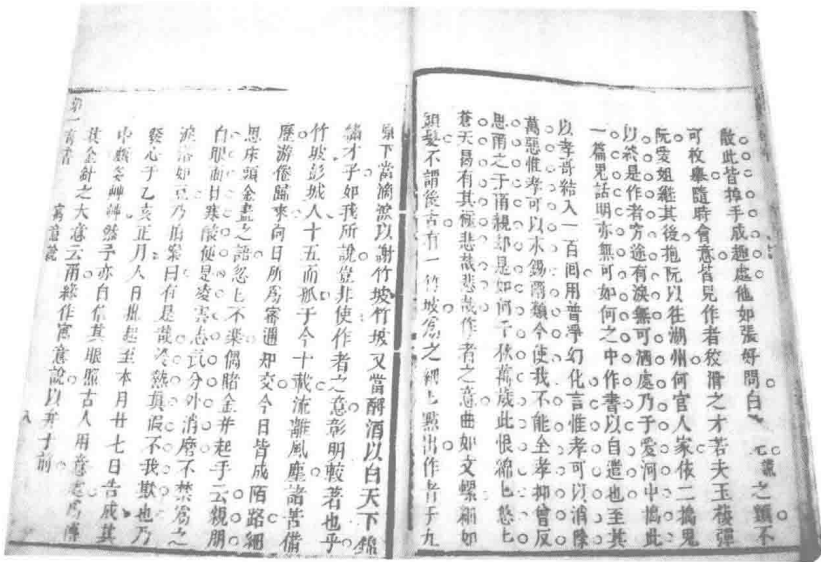 此皆推手成趣處他如張好問白謊之類不
可枚舉隨時會意皆見作者狡滑之才若夫玉樓彈
阮愛姐繼其後抱阮以往湖州何官人家依二搗鬼
以終是作者穷途有淚無可洒處乃于愛河中搗此
一篇鬼話明亦無可如何之中作書以自遣也至其
以孝哥結入一百囬用普淨幻化言惟孝可以消除
萬惡惟孝可以永錫爾類今使我不能全孝抑曾反
思爾之于爾親却是如何千秋萬歲此恨綿匕悠匕
蒼天曷有其極悲哉悲哉作者之意曲如文螺細如
頭髮不謂後古有一竹坡爲之細匕點出作者于九
泉下當滴淚以謝竹坡竹坡又當酹酒以白天下錦
繡才子如我所說豈非使作者之意彰明較著也乎
竹坡彭城人十五而孤于今十載流離風塵諸苦備
歷游倦歸來向日所爲密邇知交今日皆成陌路細
思床頭金盡之語忽匕不樂偶睹金瓶起手云親朋
白眼面目寒酸便是凌雲志氣分外消磨不禁爲之
淚落如豆乃拍案曰有是哉冷熱真假不我欺也乃
發心于乙亥正月人日批起至本月廿七日告成其
中頗多艸艸然予亦自信其眼照古人用意處爲傳
其金針之大意云爾緣作寓意說以弁于前
第一奇書 寓意說 八